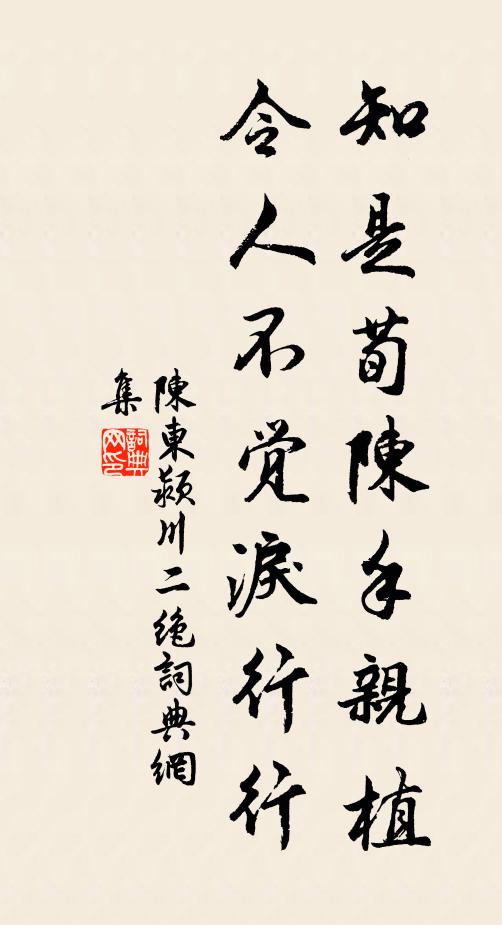 知是荀陳手親植
令人不覺淚行行
陳東潁川二絕詞典網
集
詞典网印